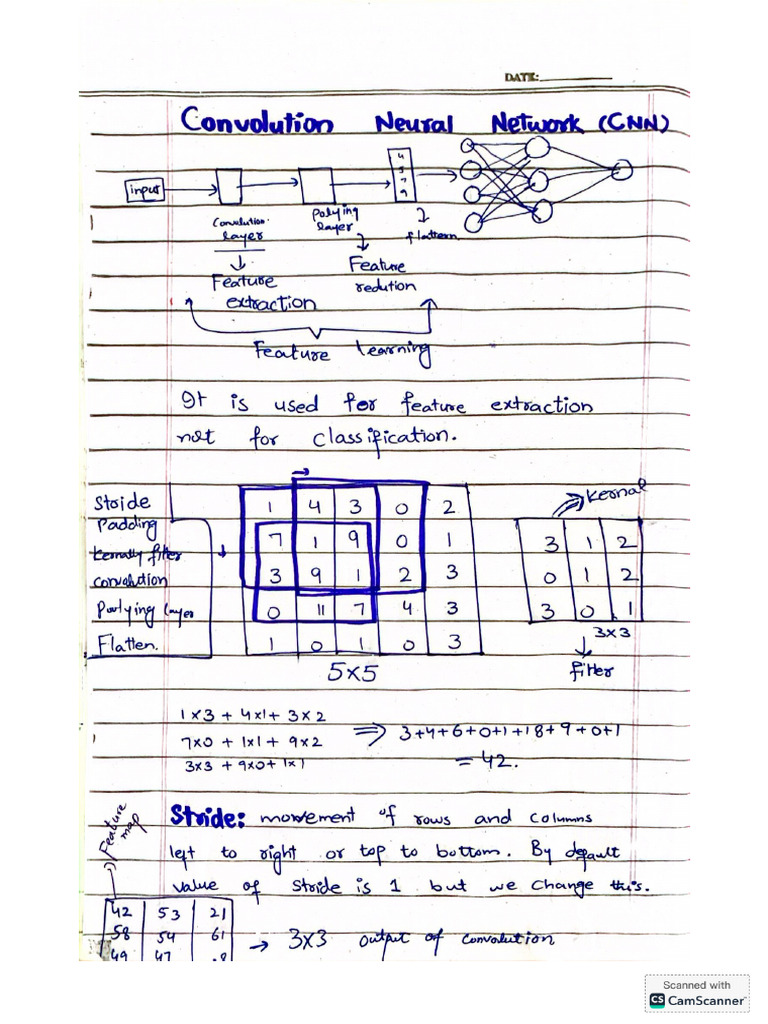 DATE:
Convolution Neural Network (CNN)
input
4
5
7
9
Convolution
layer
Polying
layer
flattern
Feature
extraction
Feature
redution
Feature learning
It is used for feature extraction
not for classification.
Stride
Padding
filter
convolution
Layer
Flatten.
1 4 3 0 2
7 1 9 0 1
3 9 1 2 3
0 11 7 4 3
1 0 1 0 3
5×5
kernal
3 1 2
0 1 2
3 0 1
3×3
filter
1×3 + 4×1 + 3×2
7×0 + 1×1 + 9×2
3×3 + 9×0 + 1×1
⇒ 3+4+6+0+1+18+9+0+1
= 42.
Feature map
Stride: movement of rows and columns
left to right or top to bottom. By default
value of stride is 1 but we change this.
42 53 21
58 54 61
49 47
→ 3×3 output of convolution
Scanned with
CS CamScanner